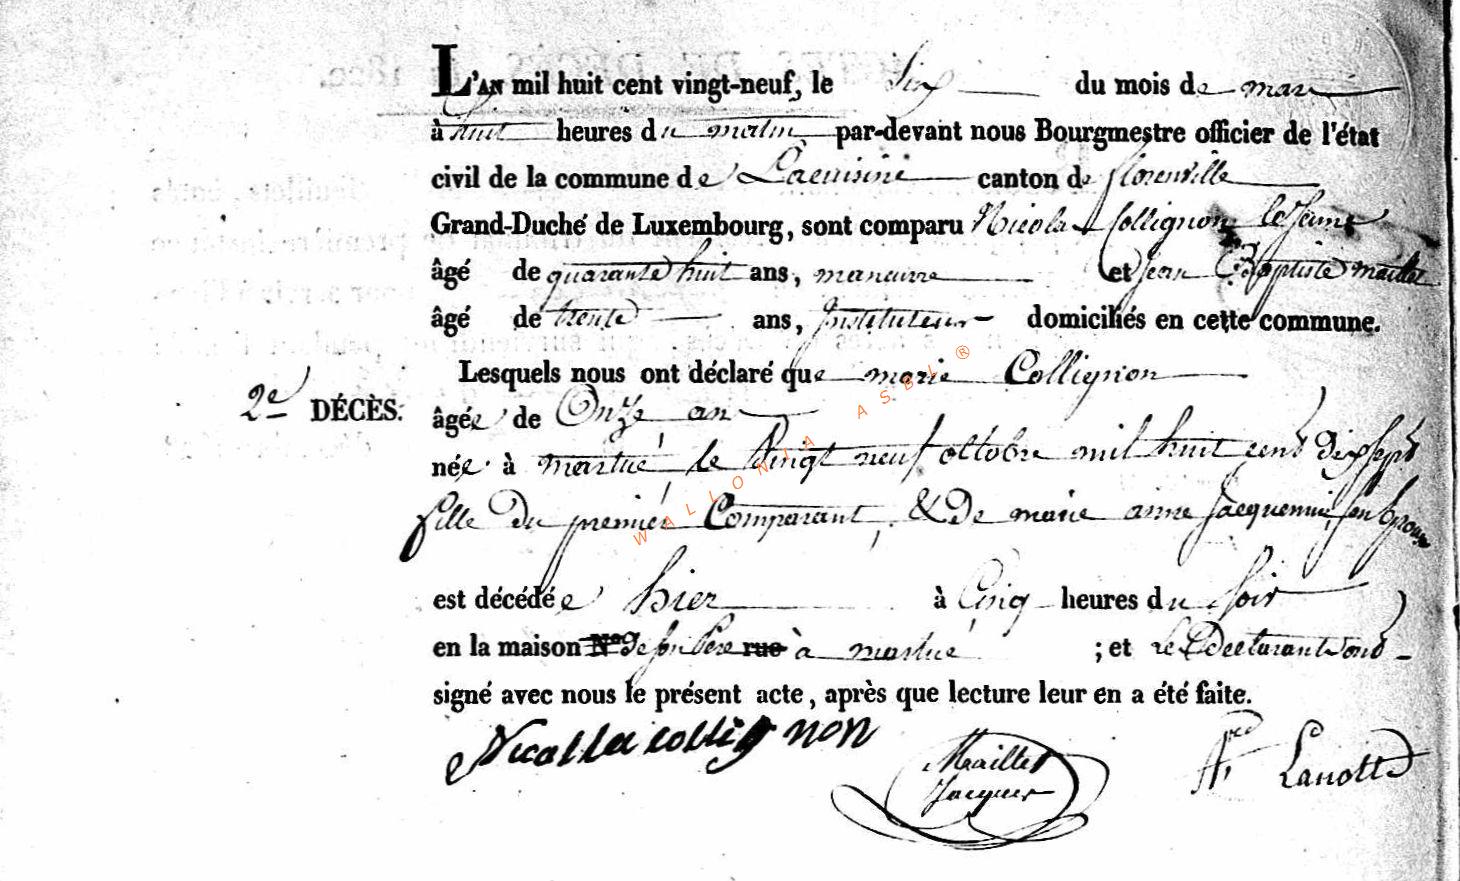 L'AN mil huit cent vingt-neuf, le Six du mois de mars
à huit heures du matin par-devant nous Bourgmestre officier de l'état
civil de la commune de Lacuisine canton de florenville
Grand-Duché de Luxembourg, sont comparu Nicolas Collignon le Jeune
âgé de quarante huit ans, manœuvre et Jean Baptiste maillet
âgé de trente ans, Instituteur domiciliés en cette commune.
Lesquels nous ont déclaré que marie Collignon
2e DÉCÈS. âgée de Onze an
née à martué le Vingt neuf octobre mil huit cent dix sept
fille du premier Comparant, & de marie anne Jacquemin, son Epouse
est décédée hier à Cinq heures du Soir
en la maison N° de son Père rue à martué ; et les Déclarants ont
signé avec nous le présent acte, après que lecture leur en a été faite.
Nicollas collignon
Maillet
Jacques
Lanotte
WALLONIA ASBL ®